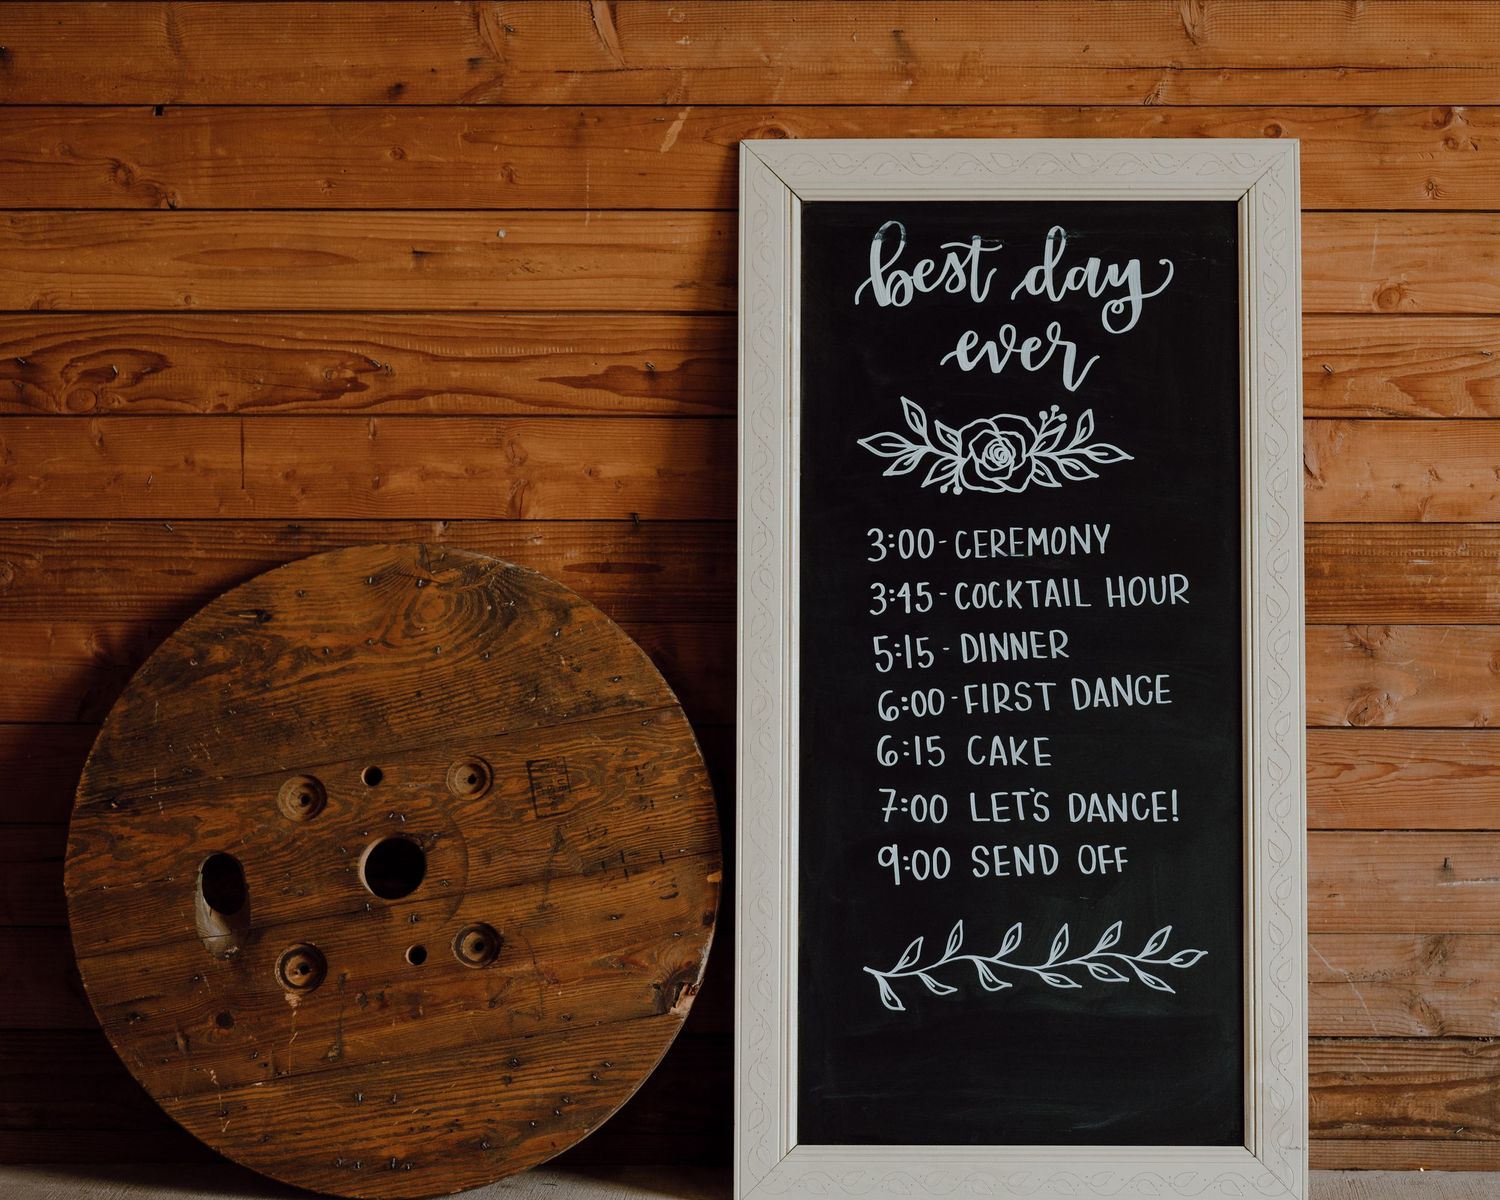 best day
ever
3:00-CEREMONY
3:45-COCKTAIL HOUR
5:15-DINNER
6:00-FIRST DANCE
6:15 CAKE
7:00 LET'S DANCE!
9:00 SEND OFF